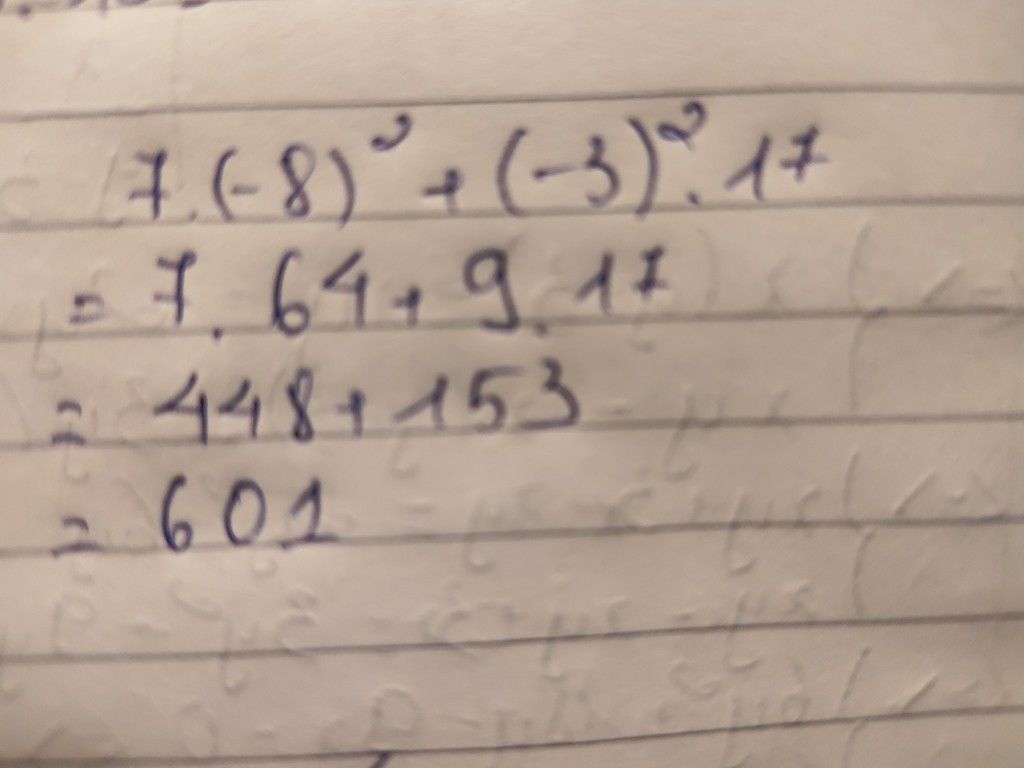 7.(-8)² + (-3)².17
= 7.64+9.17
= 448+153
= 601